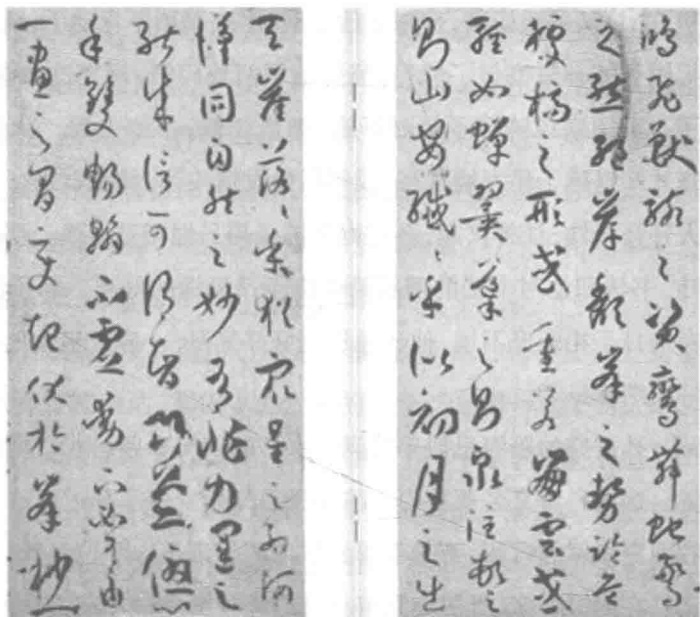 鴻飛獸駭之資鸞舞蛇驚
之態絕岸頹峯之勢臨危
據槁之形或重若崩雲或
輕如蟬翼導之則泉注頓之
則山安纖纖乎似初月之出
天崖落落乎猶衆星之列河
漢同自然之妙有非力運之
能成信可謂智巧兼優心
手雙暢翰不虛動下必有由
一畫之間變起伏於峯杪一